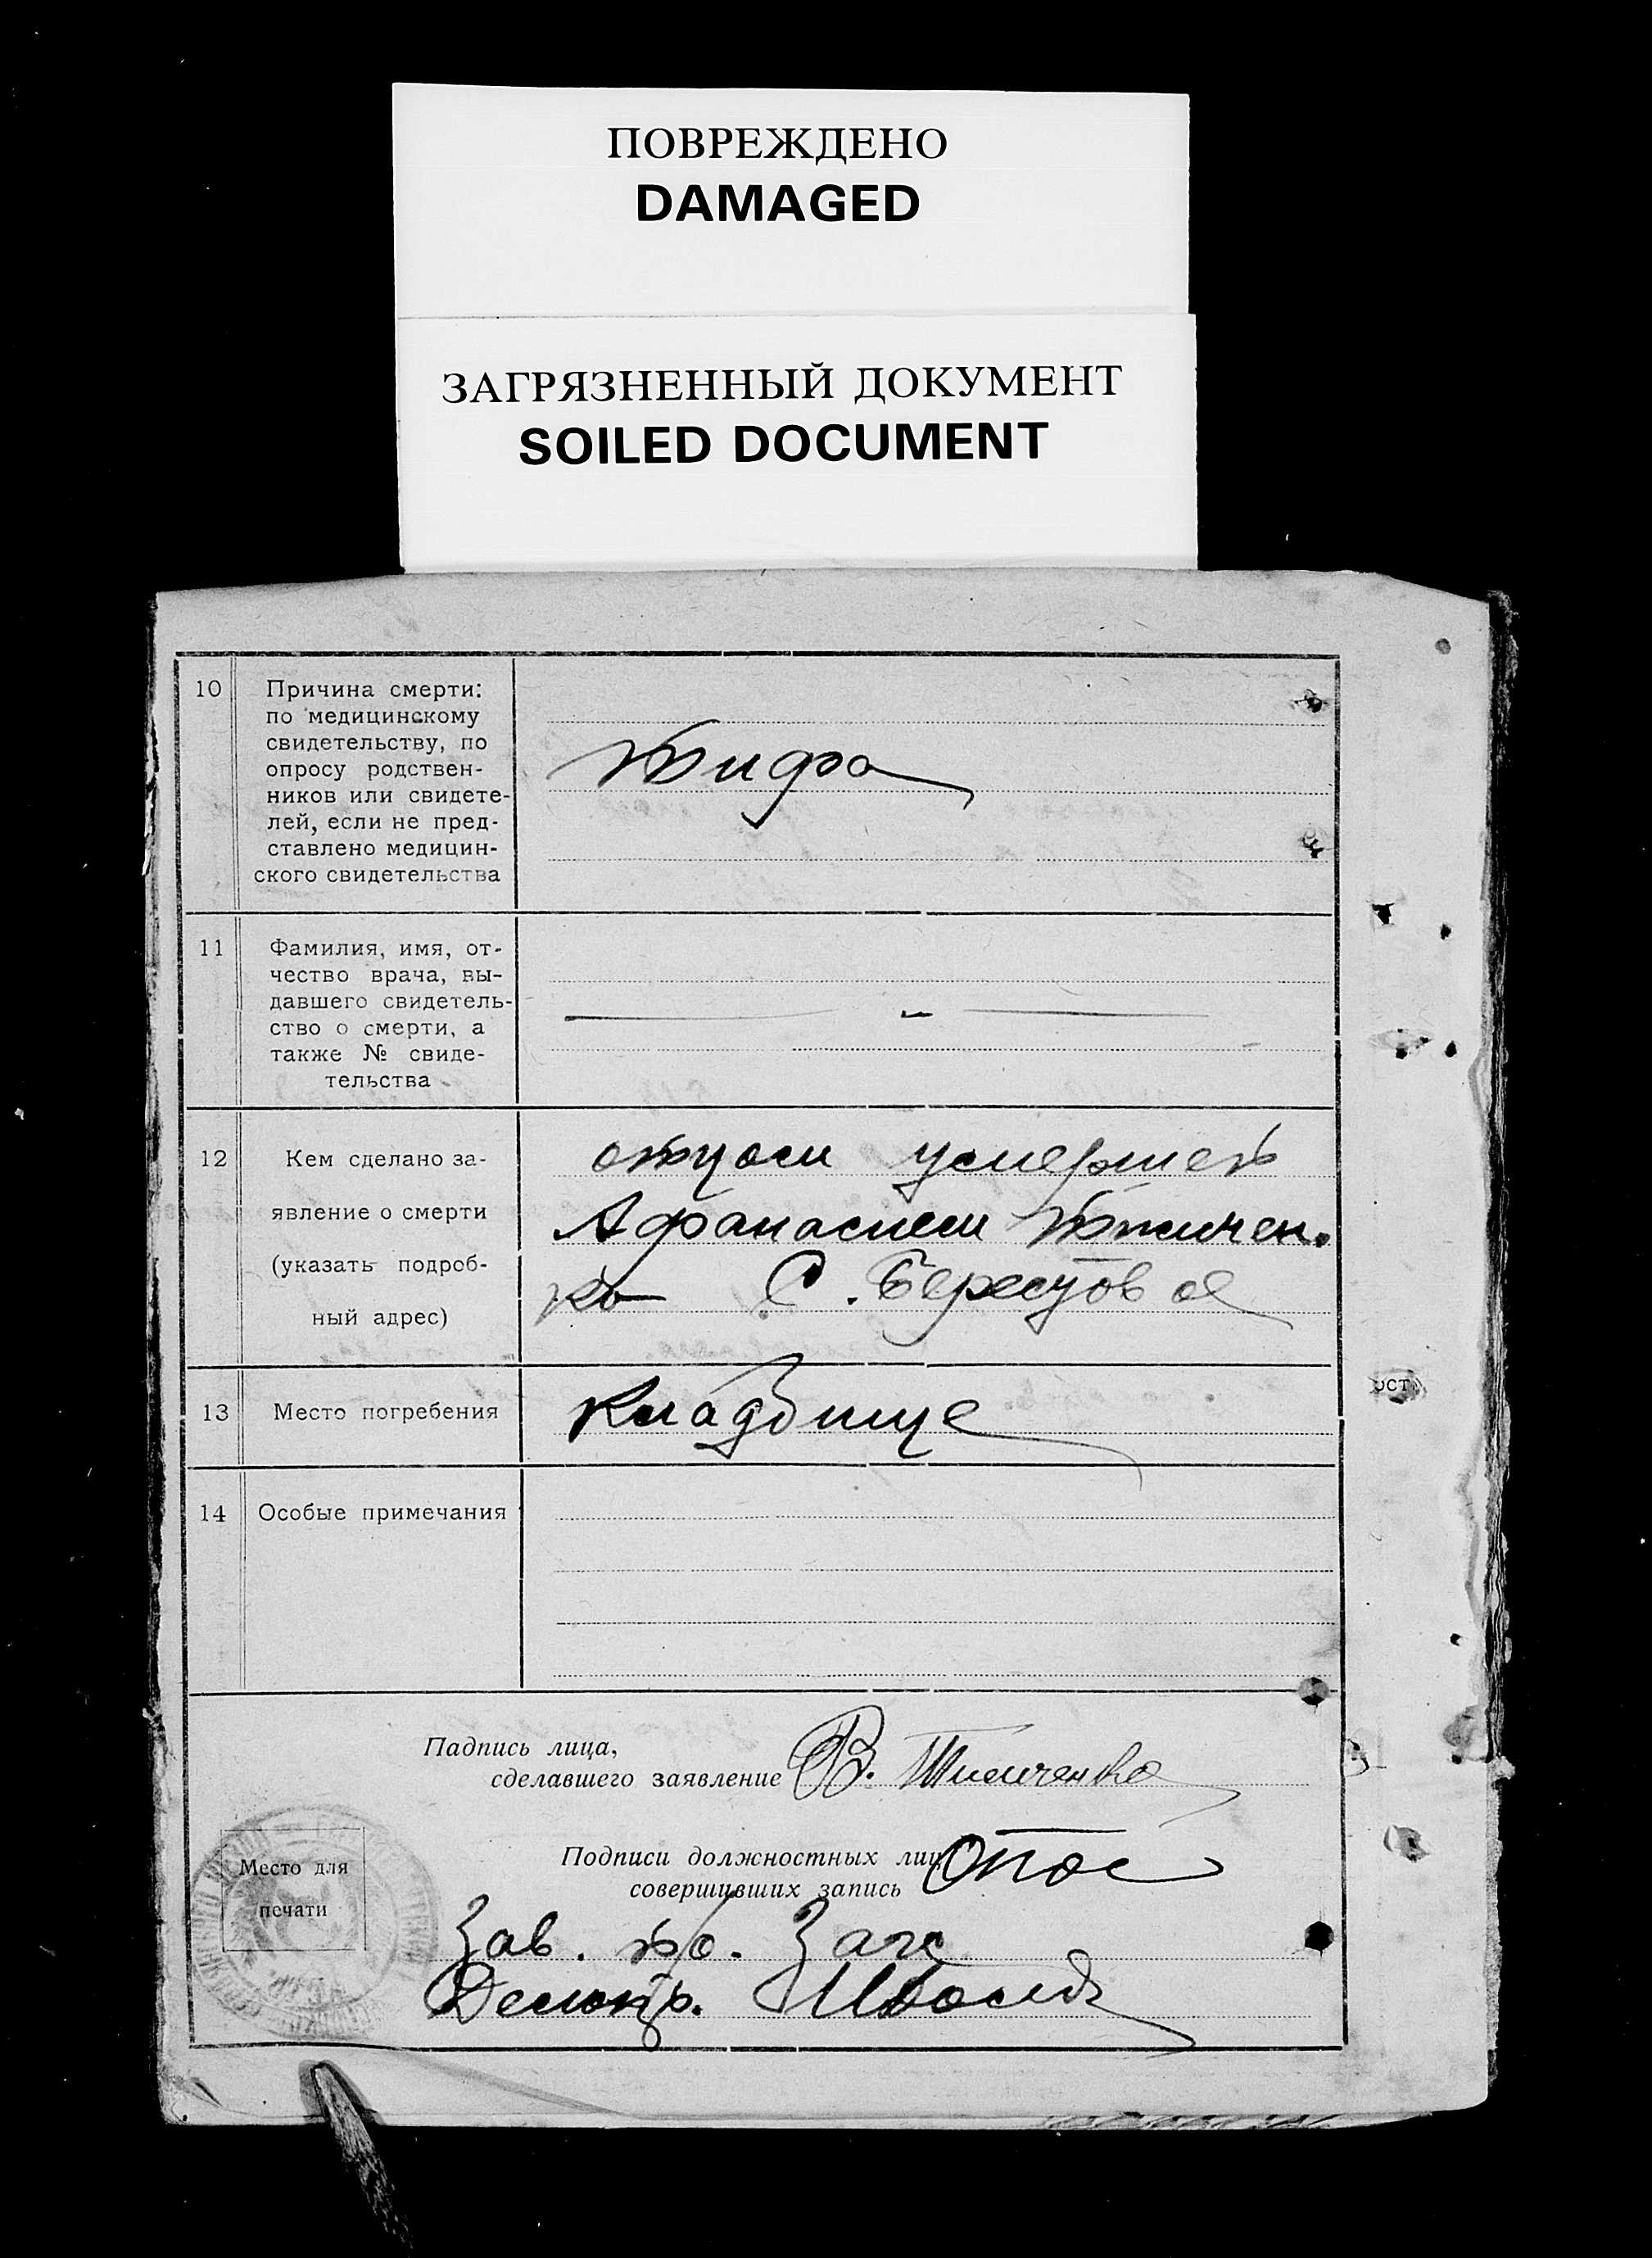 ПОВРЕЖДЕНО
DAMAGED
ЗАГРЯЗНЕННЫЙ ДОКУМЕНТ
SOILED DOCUMENT
10
Причина смерти:
по медицинскому
свидетельству, по
опросу родствен-
ников или свидете-
лей, если не пред-
ставлено медицин-
ского свидетельства
Тифа
11
Фамилия, имя, от-
чество врача, вы-
давшего свидетель-
ство о смерти, а
также № свиде-
тельства
— - —
12
Кем сделано за-
явление о смерти
(указать подроб-
ный адрес)
отцом умершей
Афанасием
ко С.
13
Место погребения
Кладбище
14
Особые примечания
Падпись лица,
сделавшего заявление
Тимченко
Подписи должностных лиц
совершивших запись
Место для
печати
Зав. Загс